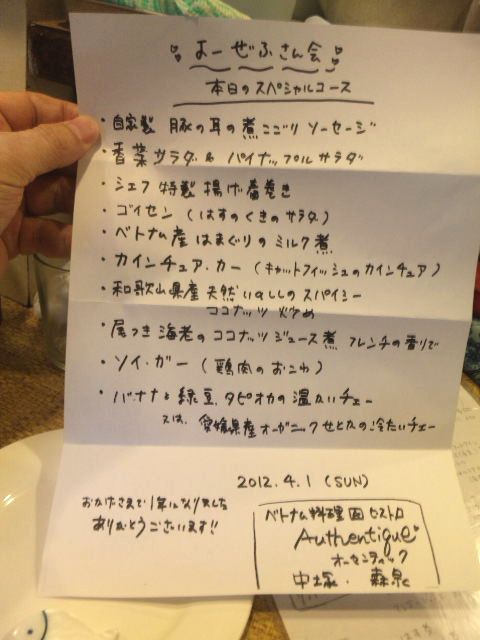 よーぜふさん会
本日のスペシャルコース
・自家製 豚の耳の煮こごり ソーセージ
・香菜サラダ & パイナップルサラダ
・シェフ特製 揚げ春巻き
・ゴイセン (はすのくきのサラダ)
・ベトナム産 はまぐりのミルク煮
・カインチュア・カー (キャットフィッシュのカインチュア)
・和歌山県産 天然いのししのスパイシー
ココナッツ炒め
・尾つき海老のココナッツジュース煮 フレンチの香りで
・ソイ・ガー (鶏肉のおこわ)
・バナナと緑豆、タピオカの温かいチェー
又は、愛媛県産オーガニックせとかの冷たいチェー
2012.4.1 (SUN)
おかげさまで1年になりました
ありがとうございます!!
ベトナム料理 ビストロ
Authentique
オーセンティック
中塚・森泉